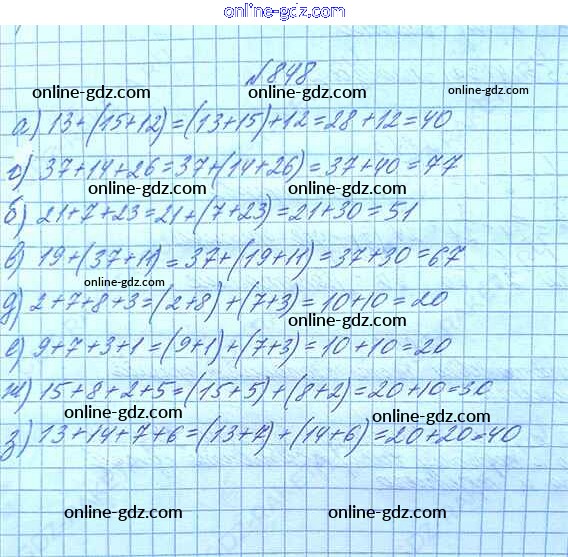 online-gdz.com
№848
online-gdz.com online-gdz.com
а) 13+(15+12)=(13+15)+12=28+12=40
г) 37+14+26=37+(14+26)=37+40=77
online-gdz.com online-gdz.com
б) 21+7+23=21+(7+23)=21+30=51
в) 19+(37+11)=37+(19+11)=37+30=67
online-gdz.com
д) 2+7+8+3=(2+8)+(7+3)=10+10=20
online-gdz.com
е) 9+7+3+1=(9+1)+(7+3)=10+10=20
ж) 15+8+2+5=(15+5)+(8+2)=20+10=30
online-gdz.com online-gdz.com
з) 13+14+7+6=(13+7)+(14+6)=20+20=40
online-gdz.com online-gdz.com